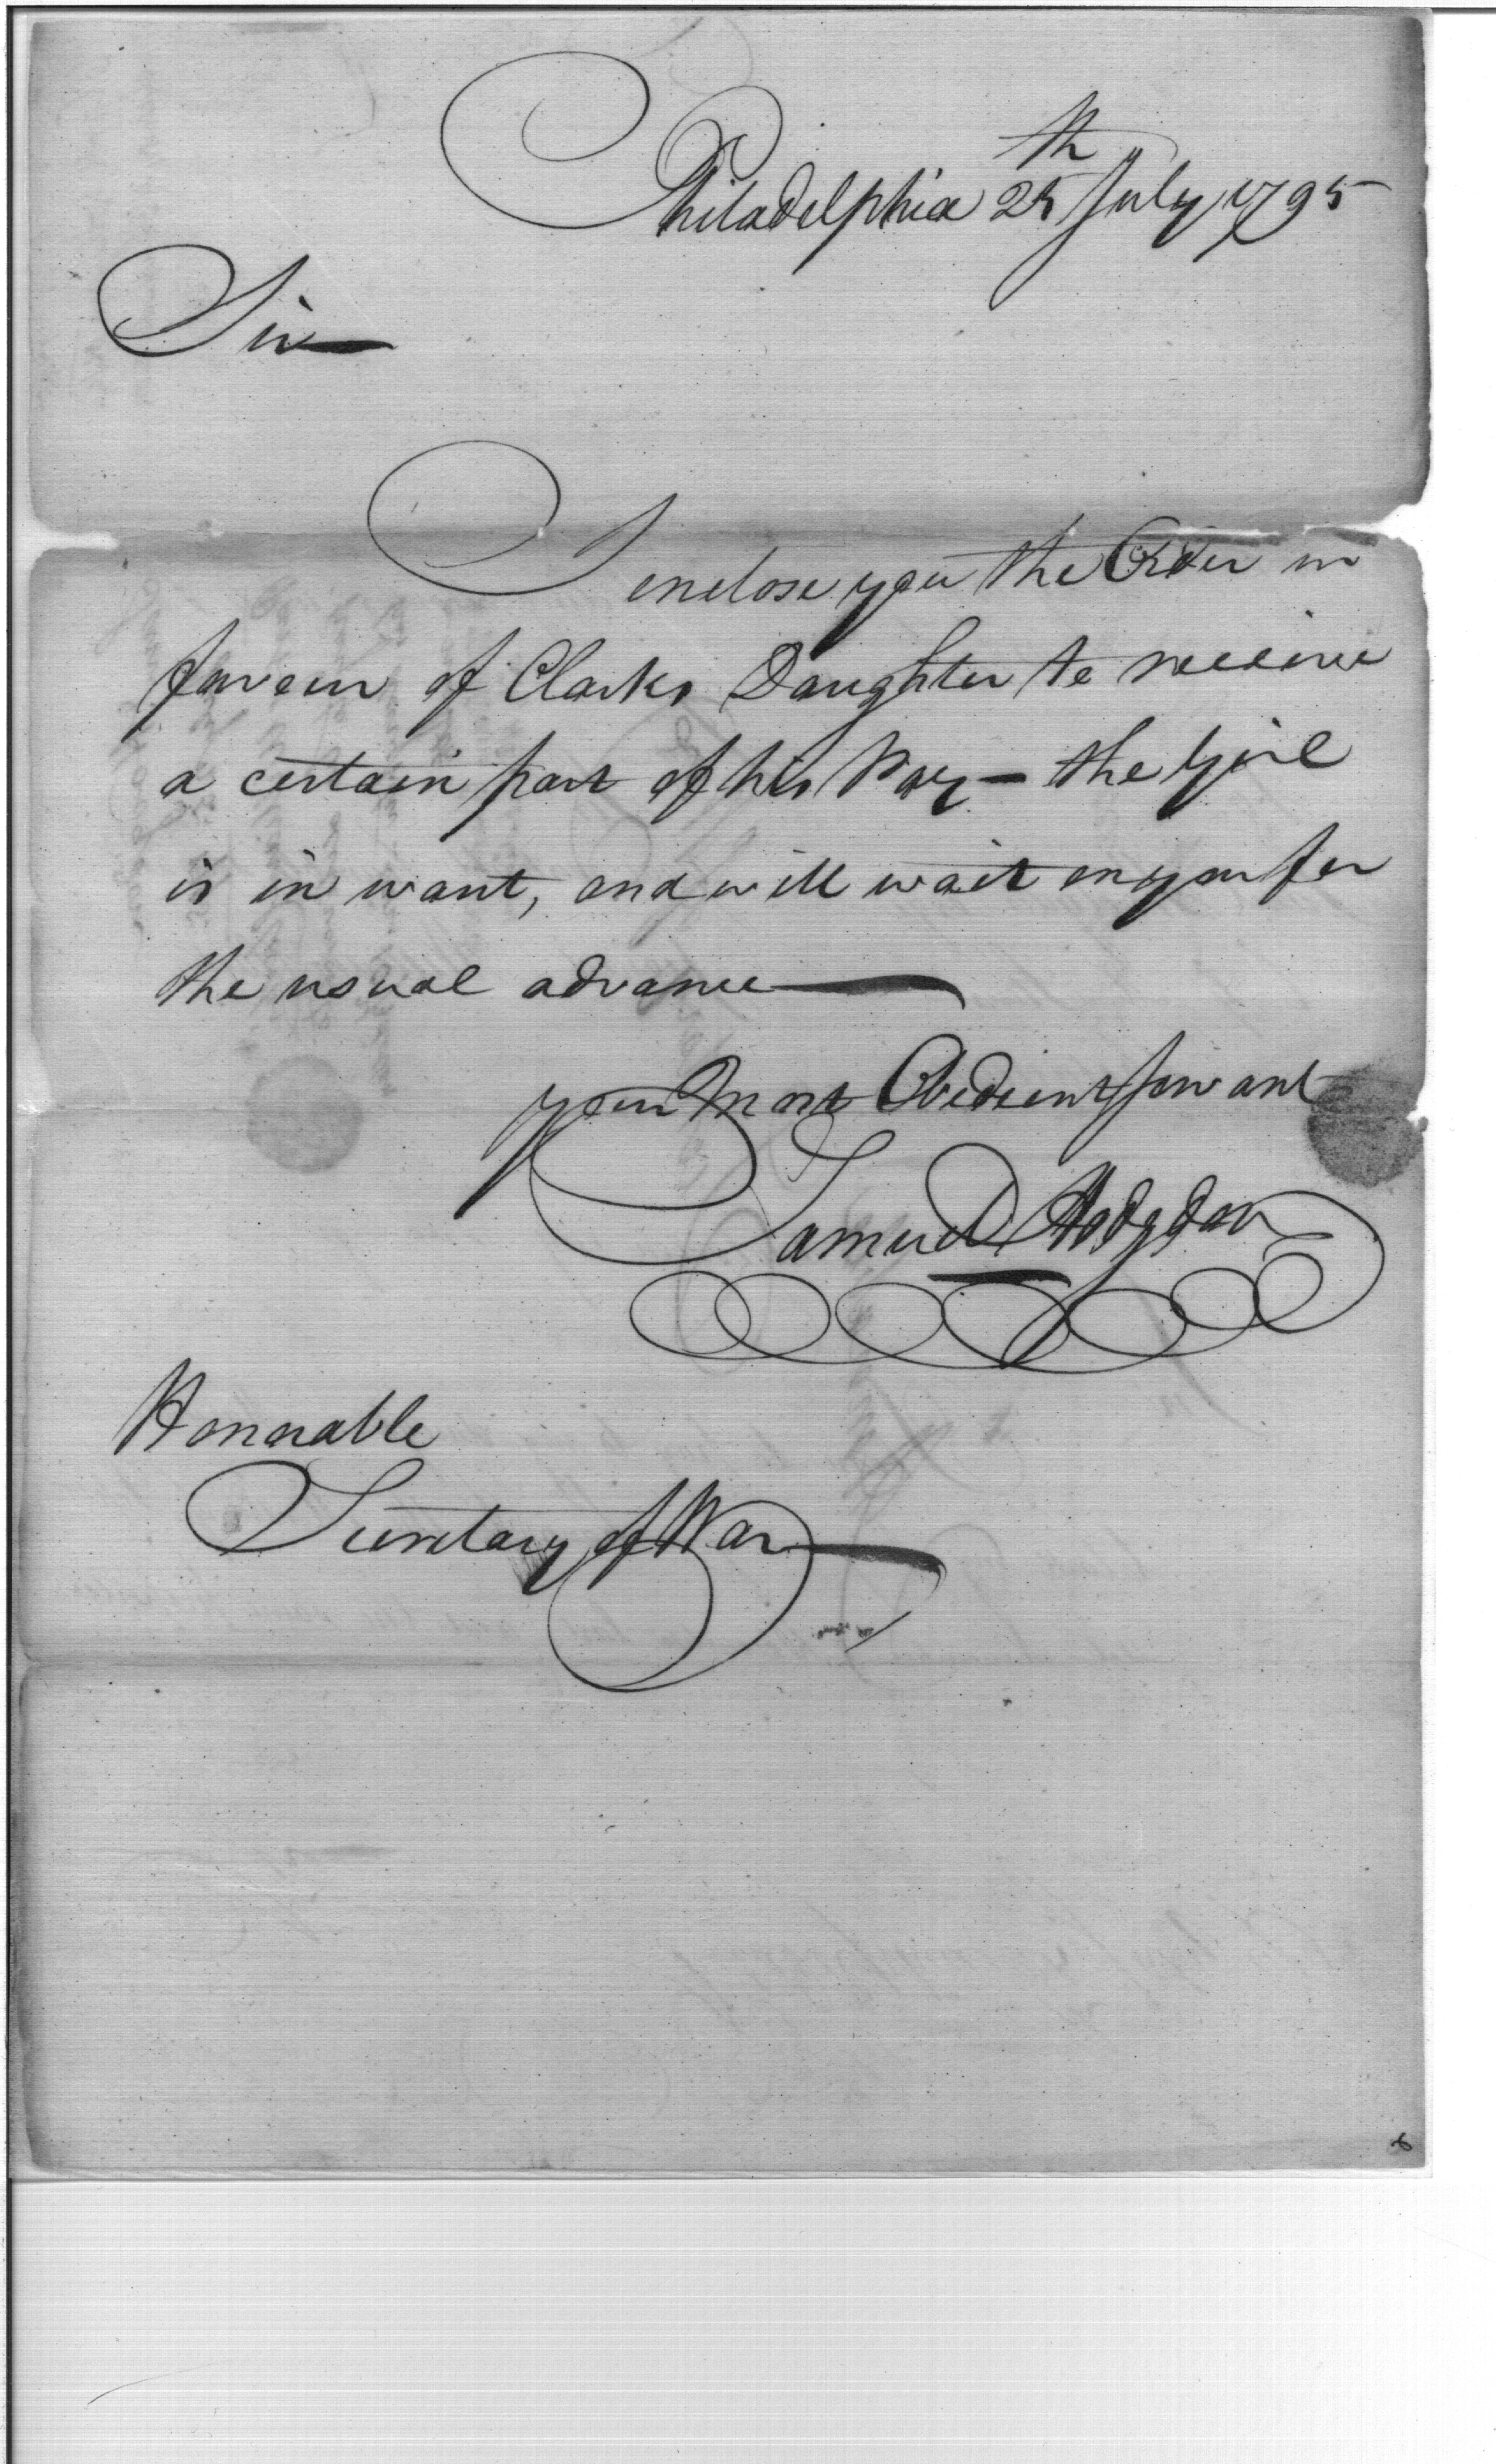 Philadelphia 25th July 1795
Sir
I enclose you the Order in
favour of Clarks Daughter to receive
a certain part of his Pay — the Girl
is in want, and will wait on you for
the usual advance
your most Obedient servant
Samuel Hodgdon
Honorable
Secretary of War